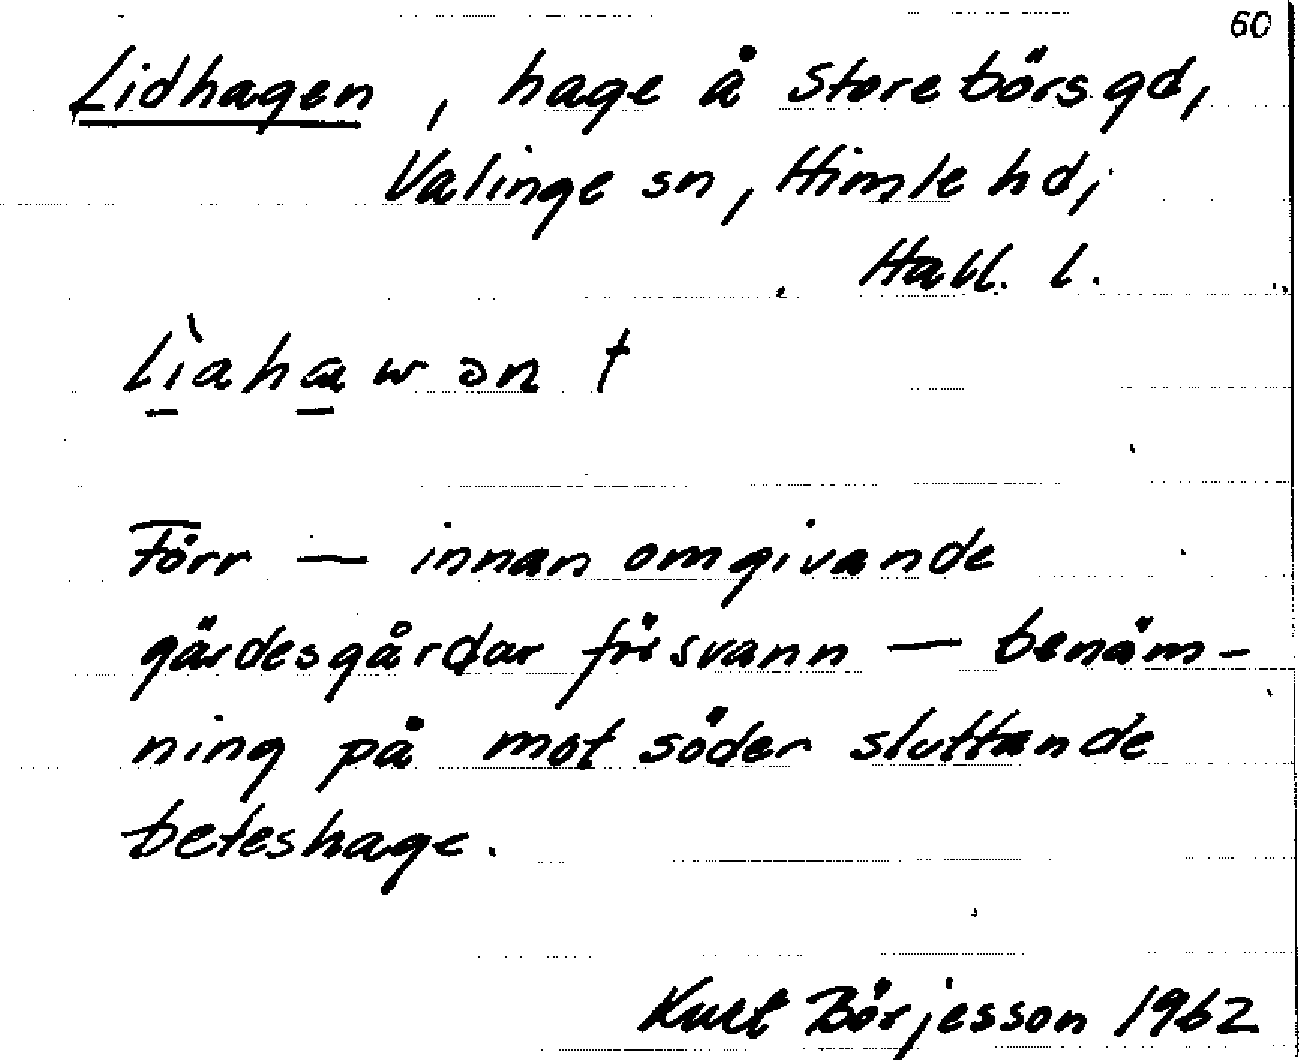 60
Lidhagen, hage å Storebörsgd,
Valinge sn, Himle hd,
Hall. l.
lìahawən †
Förr — innan omgivande
gärdesgårdar försvann — benäm-
ning på mot söder sluttande
beteshage.
Kurt Börjesson 1962